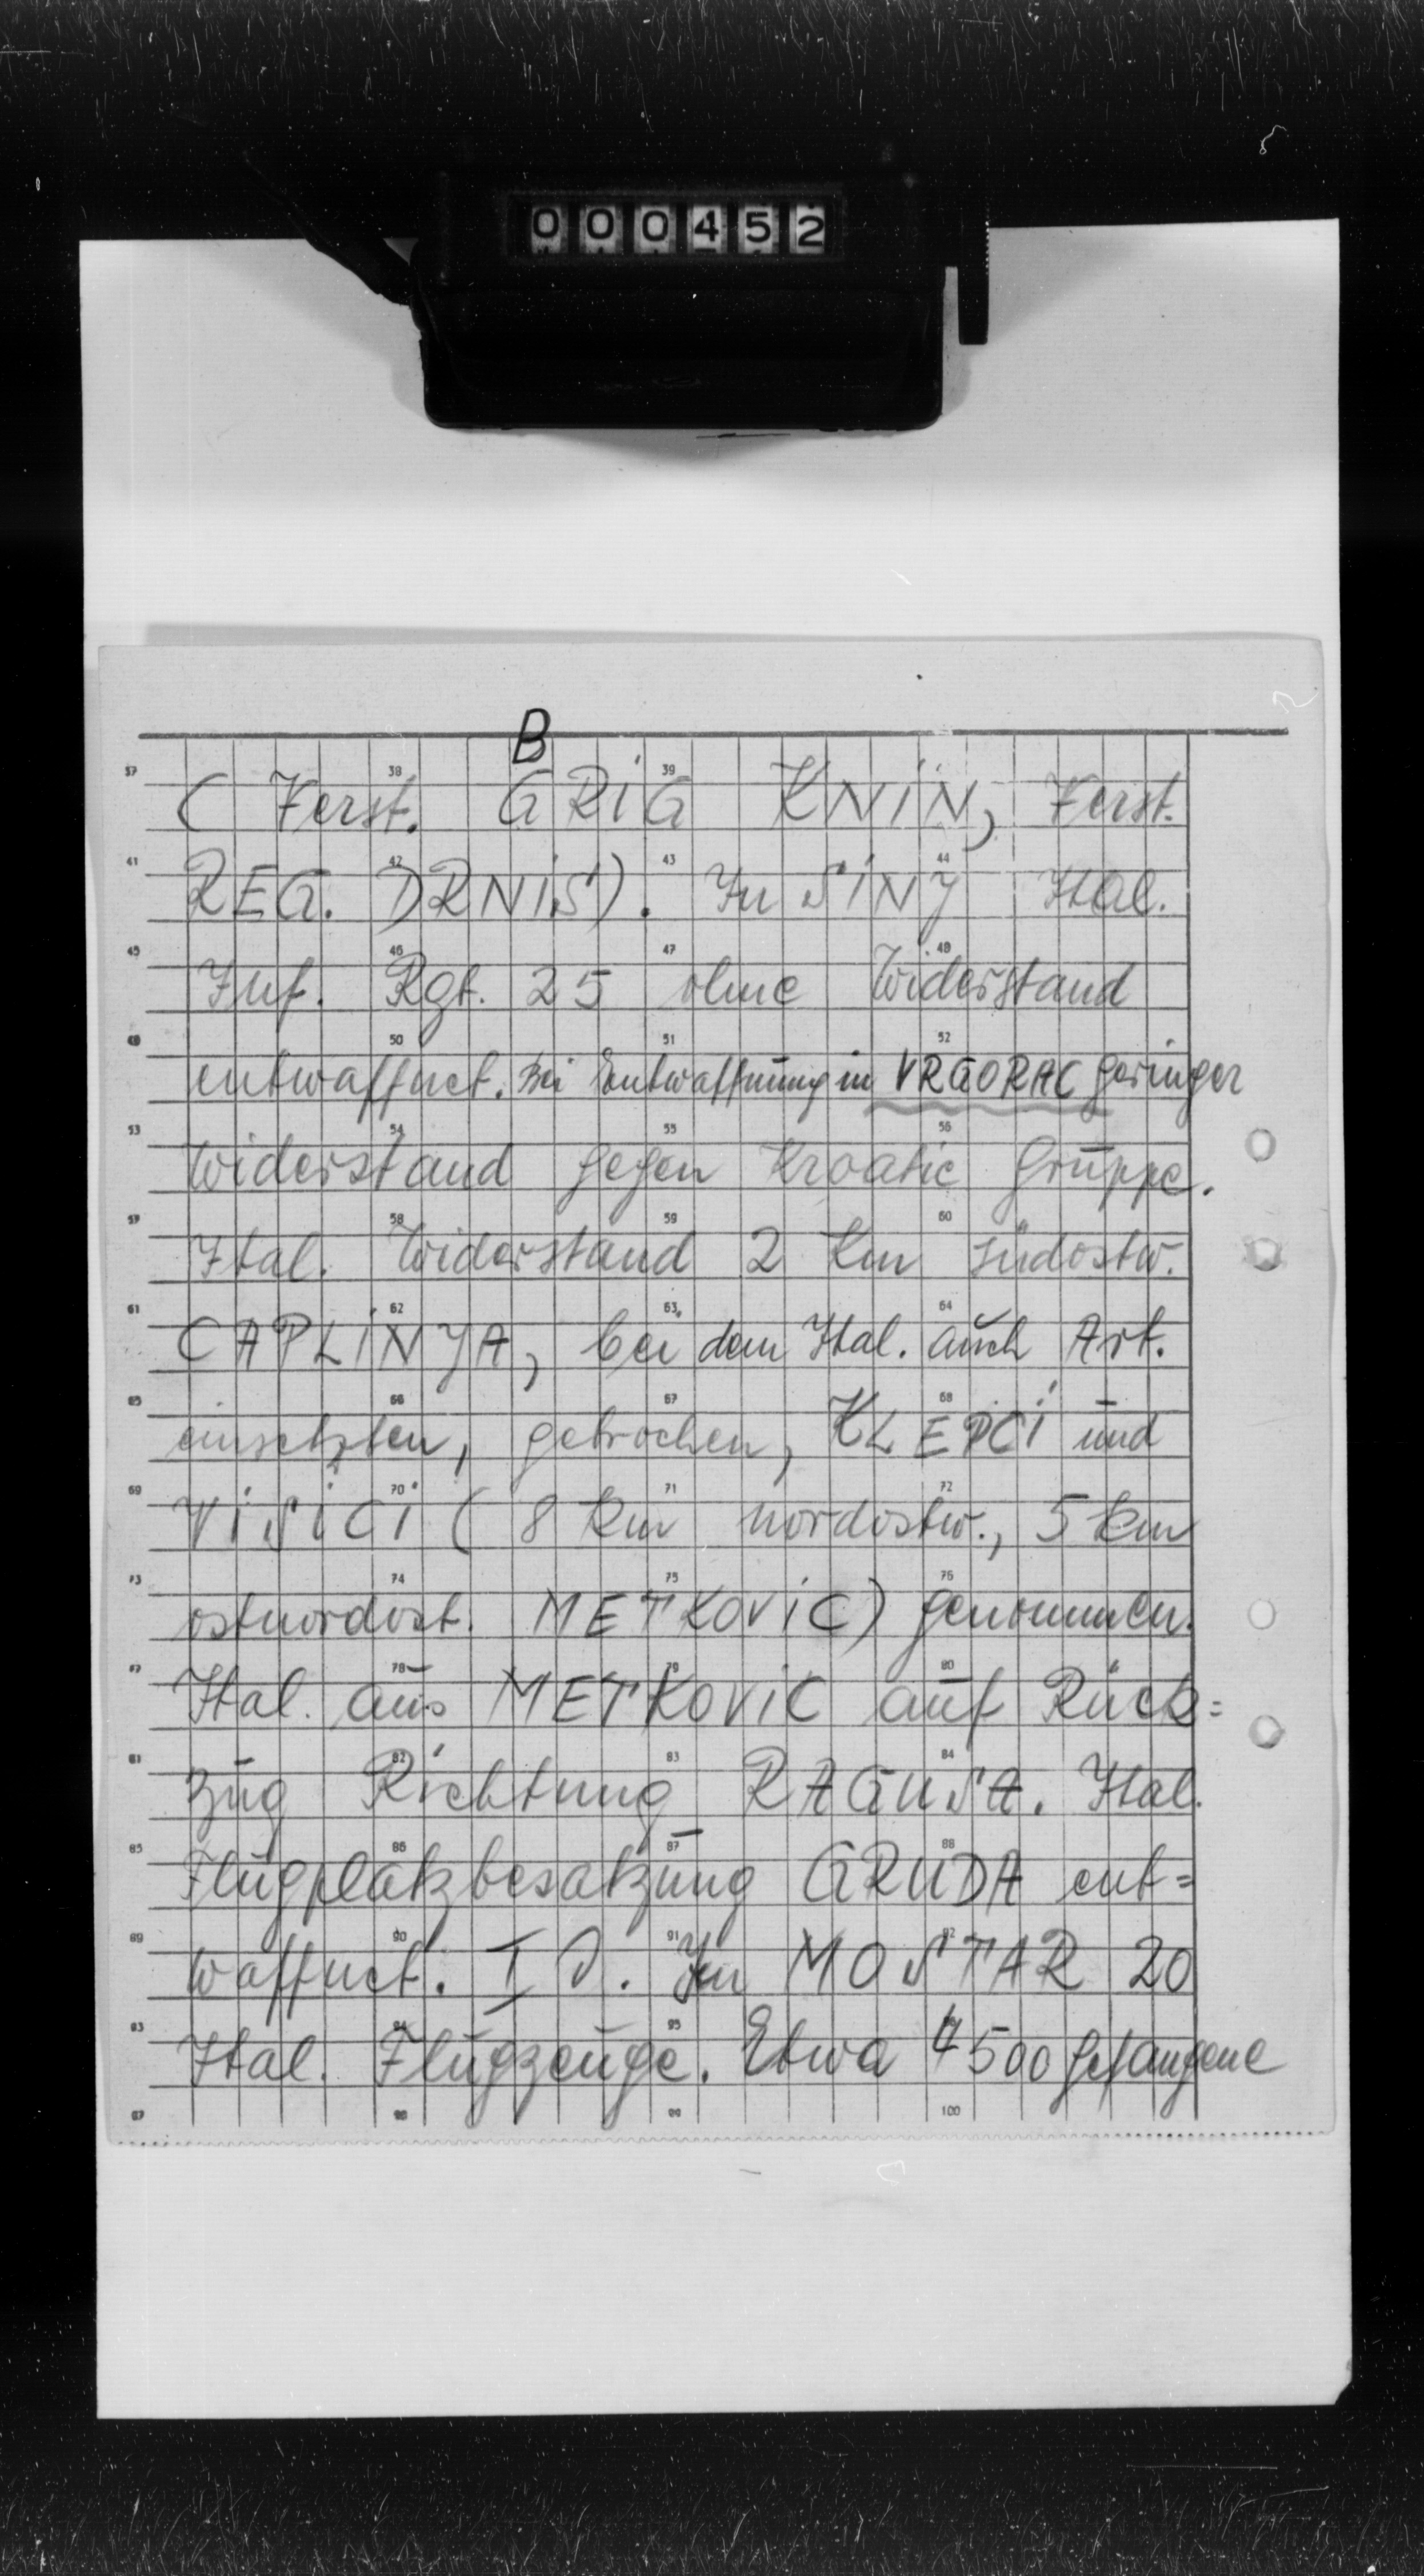 000452
B
( Verst. GRIG KNIN, Verst.
REG. DRNIS). In SINJ Ital.
Inf. Rgt. 25 ohne Widerstand
entwaffnet. Bei Entwaffnung in VRGORAC geringer
Widerstand gegen Kroatic Gruppe.
Ital. Widerstand 2 km südostw.
CAPLINJA, bei dem Ital. auch Art.
einsetzten, gebrochen, KLEPCI und
VISICI ( 8 km nordostw., 5 km
ostnordost. METKOVIC) genommen.
Ital. aus METKOVIC auf Rück=
zug Richtung RAGUSA. Ital.
Flugplatzbesatzung GRUDA ent=
waffnet. I D. In MOSTAR 20
Ital. Flugzeuge. Etwa 4500 Gefangene